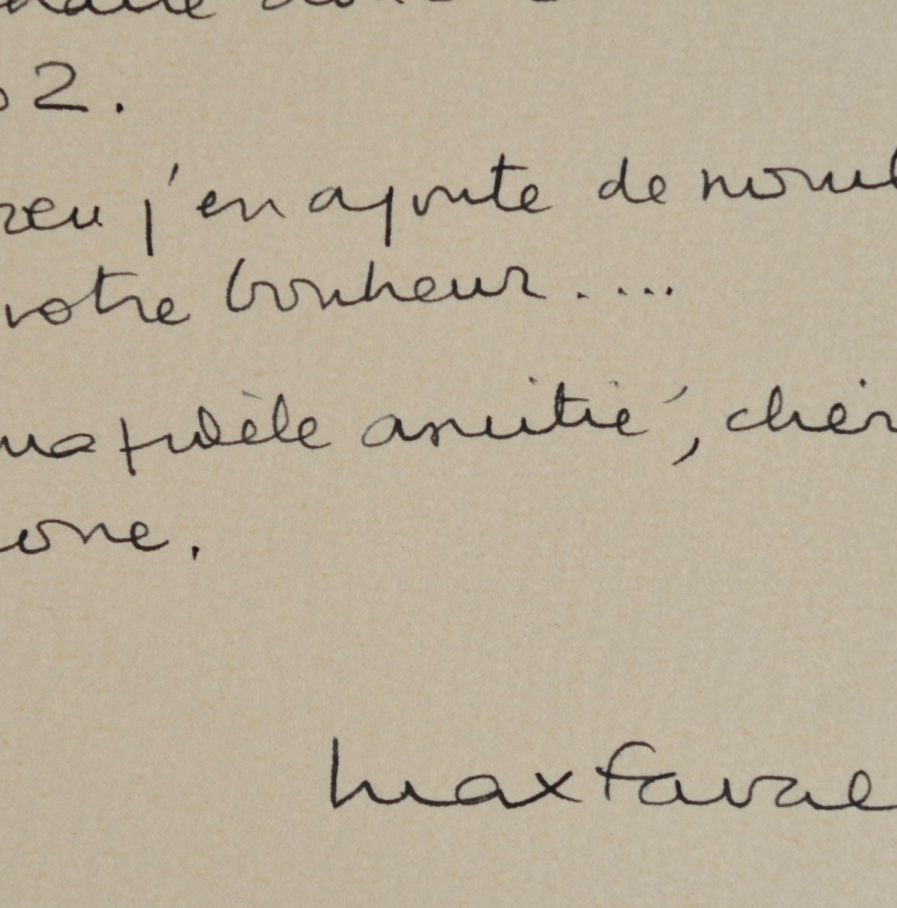 2.
j'en ajoute de
votre bonheur.....
ma fidèle amitié, cher
one.
Max Faval